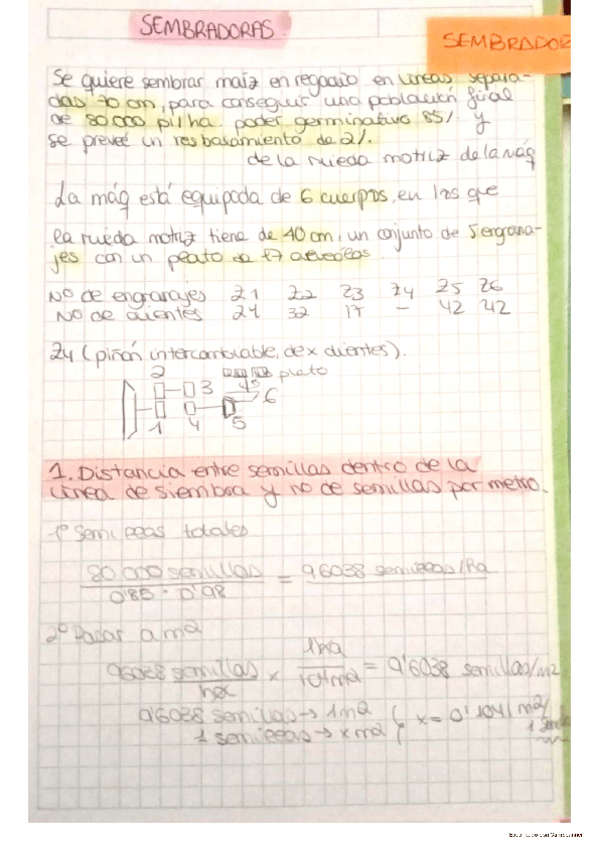 SEMBRADORAS
SEMBRADOR
Se quiere sembrar maíz en regadío en líneas separa-
das 70 cm, para conseguir una población final
de 80000 pl/ha poder germinativo 85% y
se preveé un resbalamiento de 2%.
de la rueda motriz de la máq
La máq está equipada de 6 cuerpos, en los que
la rueda motriz tiene de 40 cm, un conjunto de 5 engrana-
jes con un plato de 17 alveolos.
Nº de engranajes Z1 Z2 Z3 Z4 Z5 Z6
Nº de dientes 24 32 17 - 42 42
Z4 (piñón intercambiable, de x dientes).
2 plato
3 6
1 4 5
1. Distancia entre semillas dentro de la
línea de siembra y no de semillas por metro.
1º Semillas totales
80 000 semillas / 0'85 · 0'98 = 96038 semillas/Ha
2º Pasar a m2
96038 semillas/ha x 1ha/10^4m2 = 9'6038 semillas/m2
9'6038 semillas → 1m2
1 semillas → x m2 } x = 0'1041 m2/